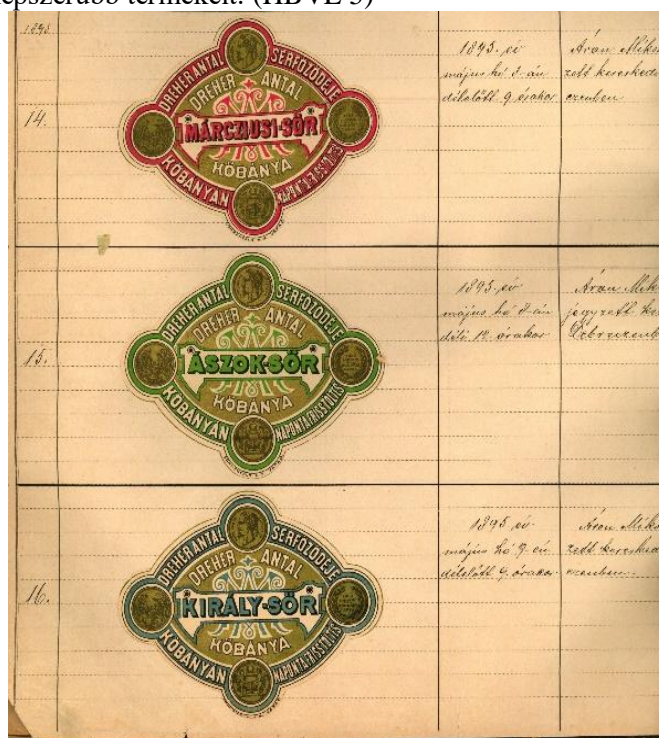 népszerűbb termékeit. (HBVE 3)
1893
14.
DREHER ANTAL SERFŐZŐDEJE
DREHER ANTAL
MÁRCZIUSI-SÖR
KŐBÁNYA
KŐBÁNYÁN NAPONTA FRISS TÖLTÉS
1893. év
május hó 8-án
délelőtt 9 órakor
Áron Miksa
zett kereskedő
czenben
15.
DREHER ANTAL SERFŐZŐDEJE
DREHER ANTAL
ÁSZOK-SÖR
KŐBÁNYA
KŐBÁNYÁN NAPONTA FRISS TÖLTÉS
1893. év
május hó 8-án
déli 12. órakor
Áron Mik
jegyzett ke
Debreczenb
16.
DREHER ANTAL SERFŐZŐDEJE
DREHER ANTAL
KIRÁLY-SÖR
KŐBÁNYA
KŐBÁNYÁN NAPONTA FRISS TÖLTÉS
1893 év
május hó 9. én
délelőtt 9. órakor
Áron Miks
zett kereske
czenben